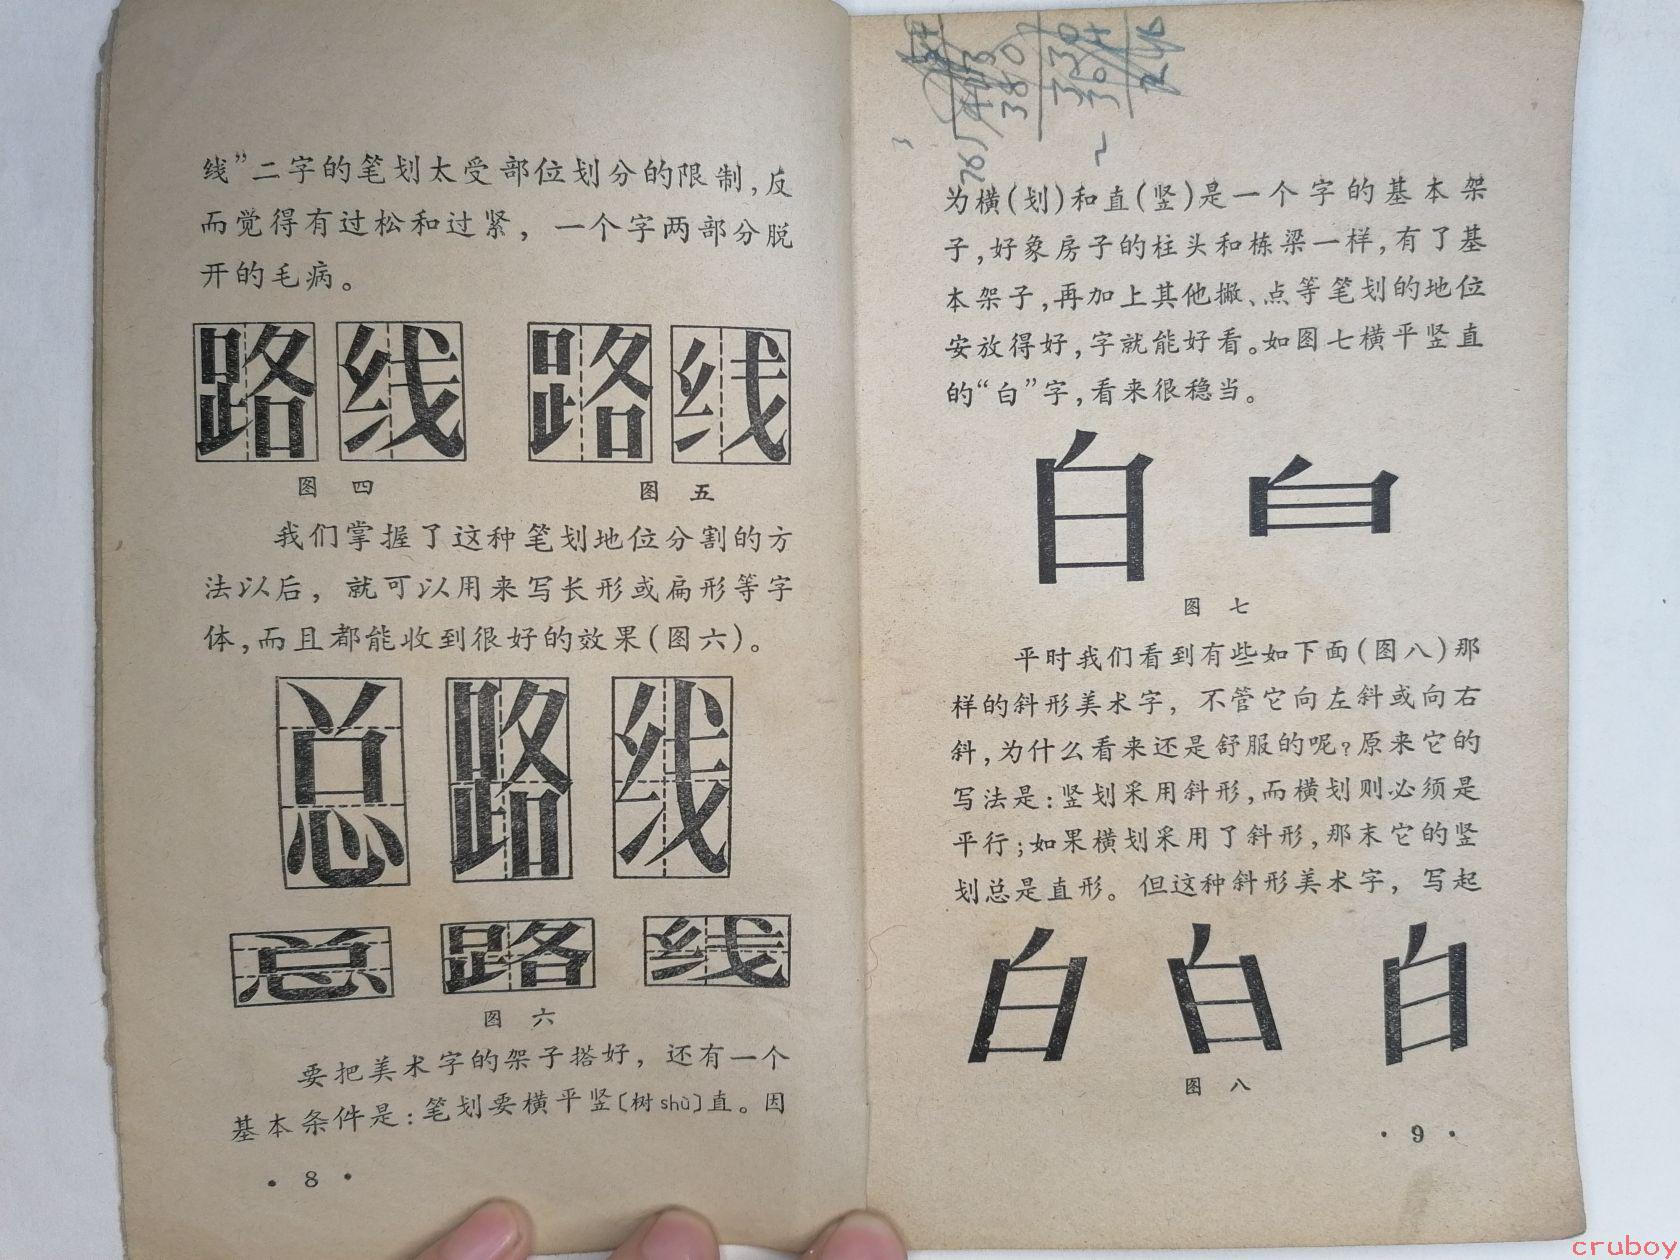 线”二字的笔划太受部位划分的限制，反
而觉得有过松和过紧，一个字两部分脱
开的毛病。
路 线 路 线
图 四 图 五
我们掌握了这种笔划地位分割的方
法以后，就可以用来写长形或扁形等字
体，而且都能收到很好的效果（图六）。
总 路 线
总 路 线
图 六
要把美术字的架子搭好，还有一个
基本条件是：笔划要横平竖〔树shù〕直。因
· 8 ·
为横（划）和直（竖）是一个字的基本架
子，好象房子的柱头和栋梁一样，有了基
本架子，再加上其他撇、点等笔划的地位
安放得好，字就能好看。如图七横平竖直
的“白”字，看来很稳当。
白 白
图 七
平时我们看到有些如下面（图八）那
样的斜形美术字，不管它向左斜或向右
斜，为什么看来还是舒服的呢？原来它的
写法是：竖划采用斜形，而横划则必须是
平行；如果横划采用了斜形，那末它的竖
划总是直形。但这种斜形美术字，写起
白 白 白
图 八
· 9 ·
cruboy